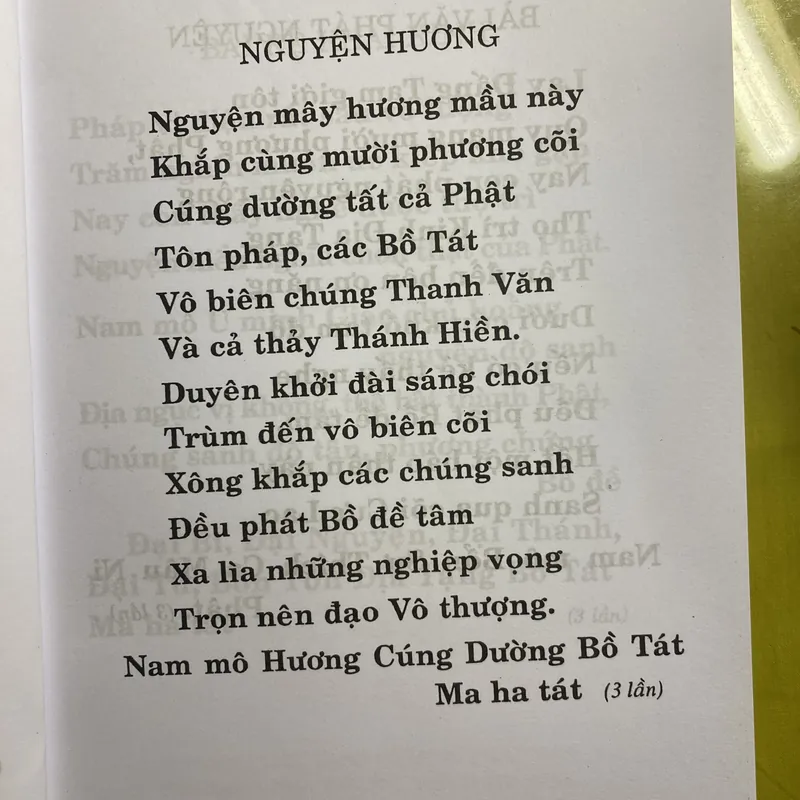 NGUYỆN HƯƠNG
Nguyện mây hương mầu này
Khắp cùng mười phương cõi
Cúng dường tất cả Phật
Tôn pháp, các Bồ Tát
Vô biên chúng Thanh Văn
Và cả thảy Thánh Hiền.
Duyên khởi đài sáng chói
Trùm đến vô biên cõi
Xông khắp các chúng sanh
Đều phát Bồ đề tâm
Xa lìa những nghiệp vọng
Trọn nên đạo Vô thượng.
Nam mô Hương Cúng Dường Bồ Tát
Ma ha tát (3 lần)